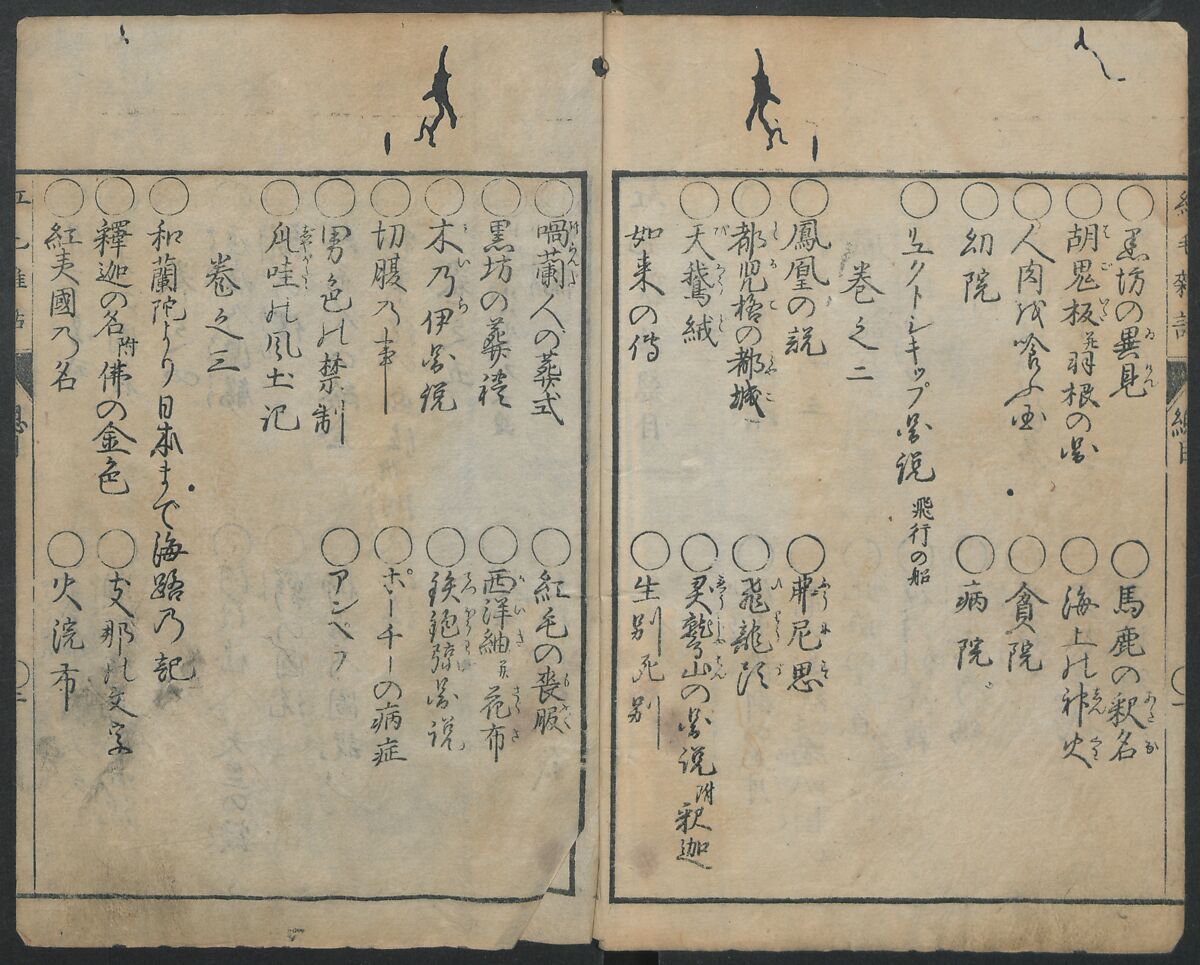 黒坊の異見
馬鹿の釈名
胡鬼板并羽根の図
海上の神火
人肉を喰ふ国
貧院
幼院
病院
リュクトシキップ図説 飛行の船
巻之二
鳳凰の説
弗尼思
都児格の都城
飛龍頭
天鵞絨
霊鷲山の図説 附釈迦
如来の傳
生別死別
喎蘭人の葬式
紅毛の喪服
黒坊の葬禮
西洋紬并花布
木乃伊図説
鉄砲弾図説
切腹乃事
ポーチーの病症
男色の禁制
アンペラ
瓜哇の風土記
巻之三
和蘭陀より日本まで海路乃記
釋迦の名 附佛の金色
支那の文字
紅夷國乃名
火浣布